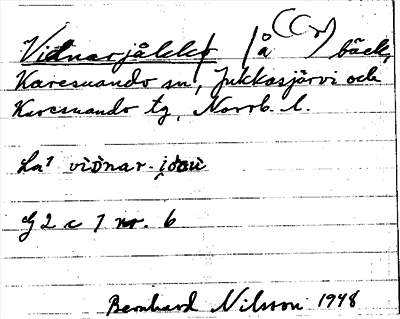 Vidnarjåkko | å (Cr) bäck,
Karesuando sn, Jukkasjärvi och
Karesuando tg, Norrb. l.
La¹ viďnar-
G 2 c 7 nr. 6
Bernhard Nilsson 1948